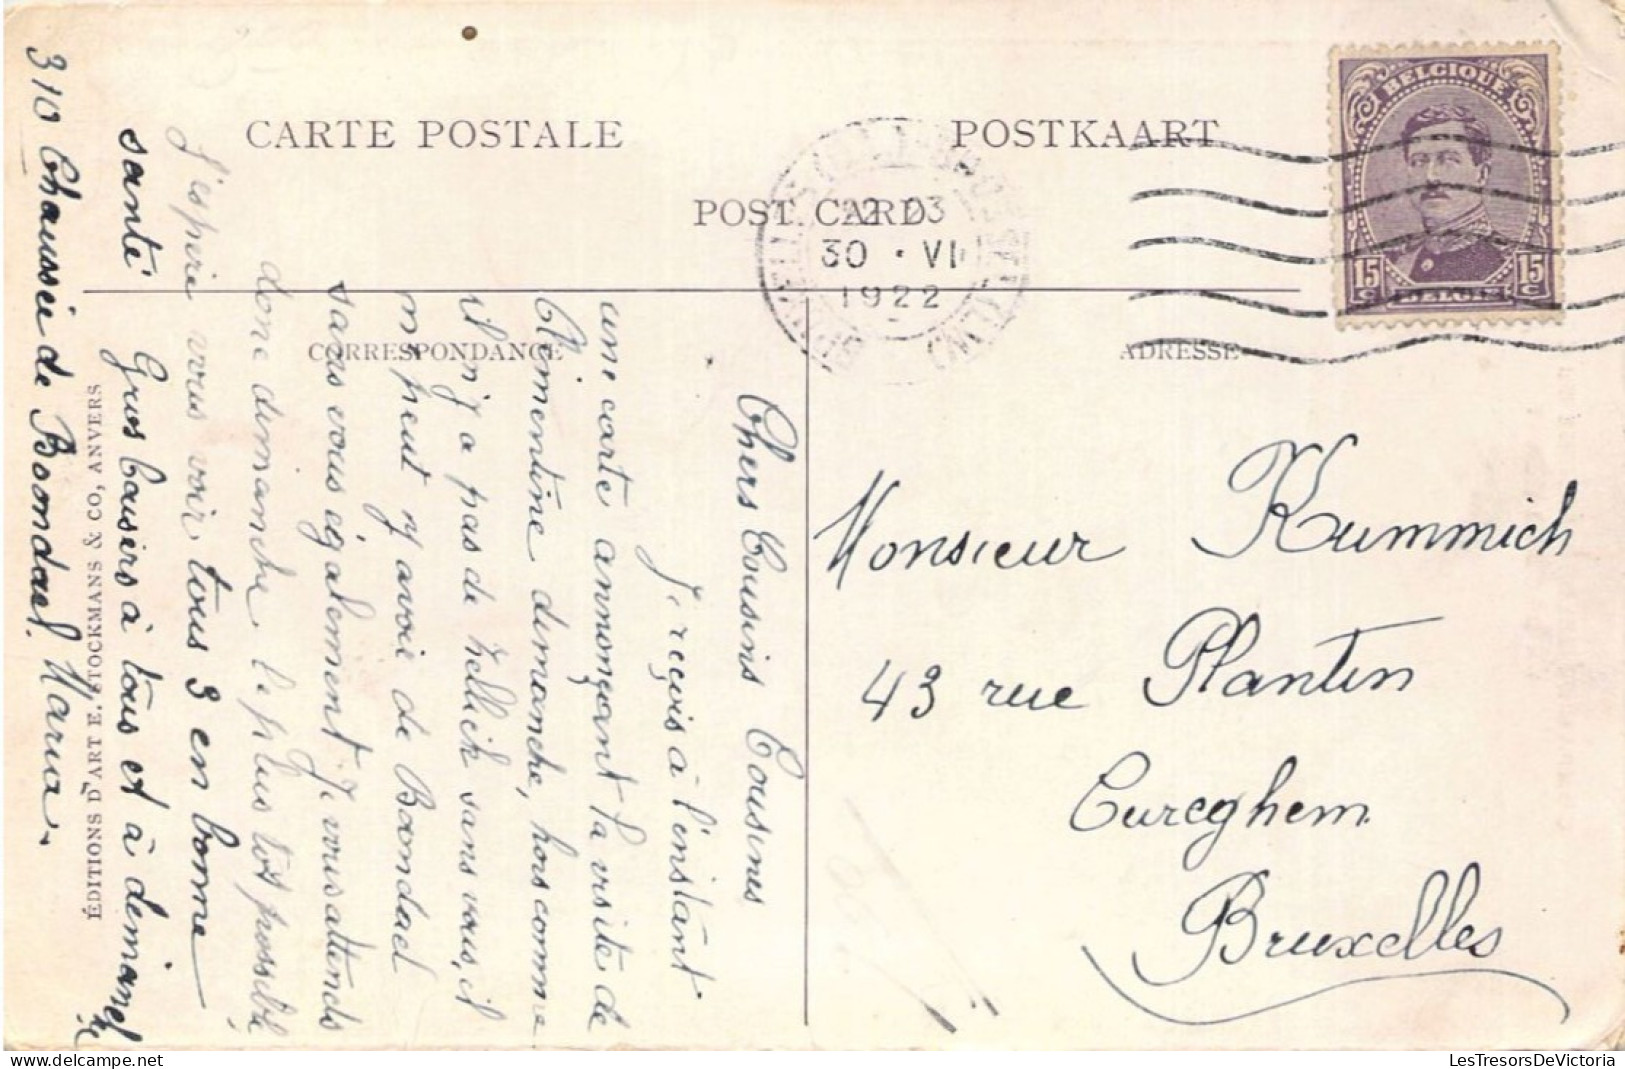 CARTE POSTALE
POSTKAART
POST CARD
22 23
30 · VI
1922
BELGIQUE
15 C
15 C
BELGIE
CORRESPONDANCE
ADRESSE
Chers Cousins Cousines
Je reçois à l'instant
une carte annonçant la visite de
Clémentine dimanche, hors comme
il n'y a pas de sans vous, il
n peut y avoir de Boondael
sans vous également Je vous attends
donc dimanche le plus tôt possible
J'espère vous voir tous 3 en bonne
santé Gros baisers à tous et à dimanche
310 Chaussée de Boondael. Maria.
ÉDITIONS D'ART E. STOCKMANS & CO, ANVERS
Monsieur Kummich
43 rue Plantin
Cureghem
Bruxelles
LesTresorsDeVictoria